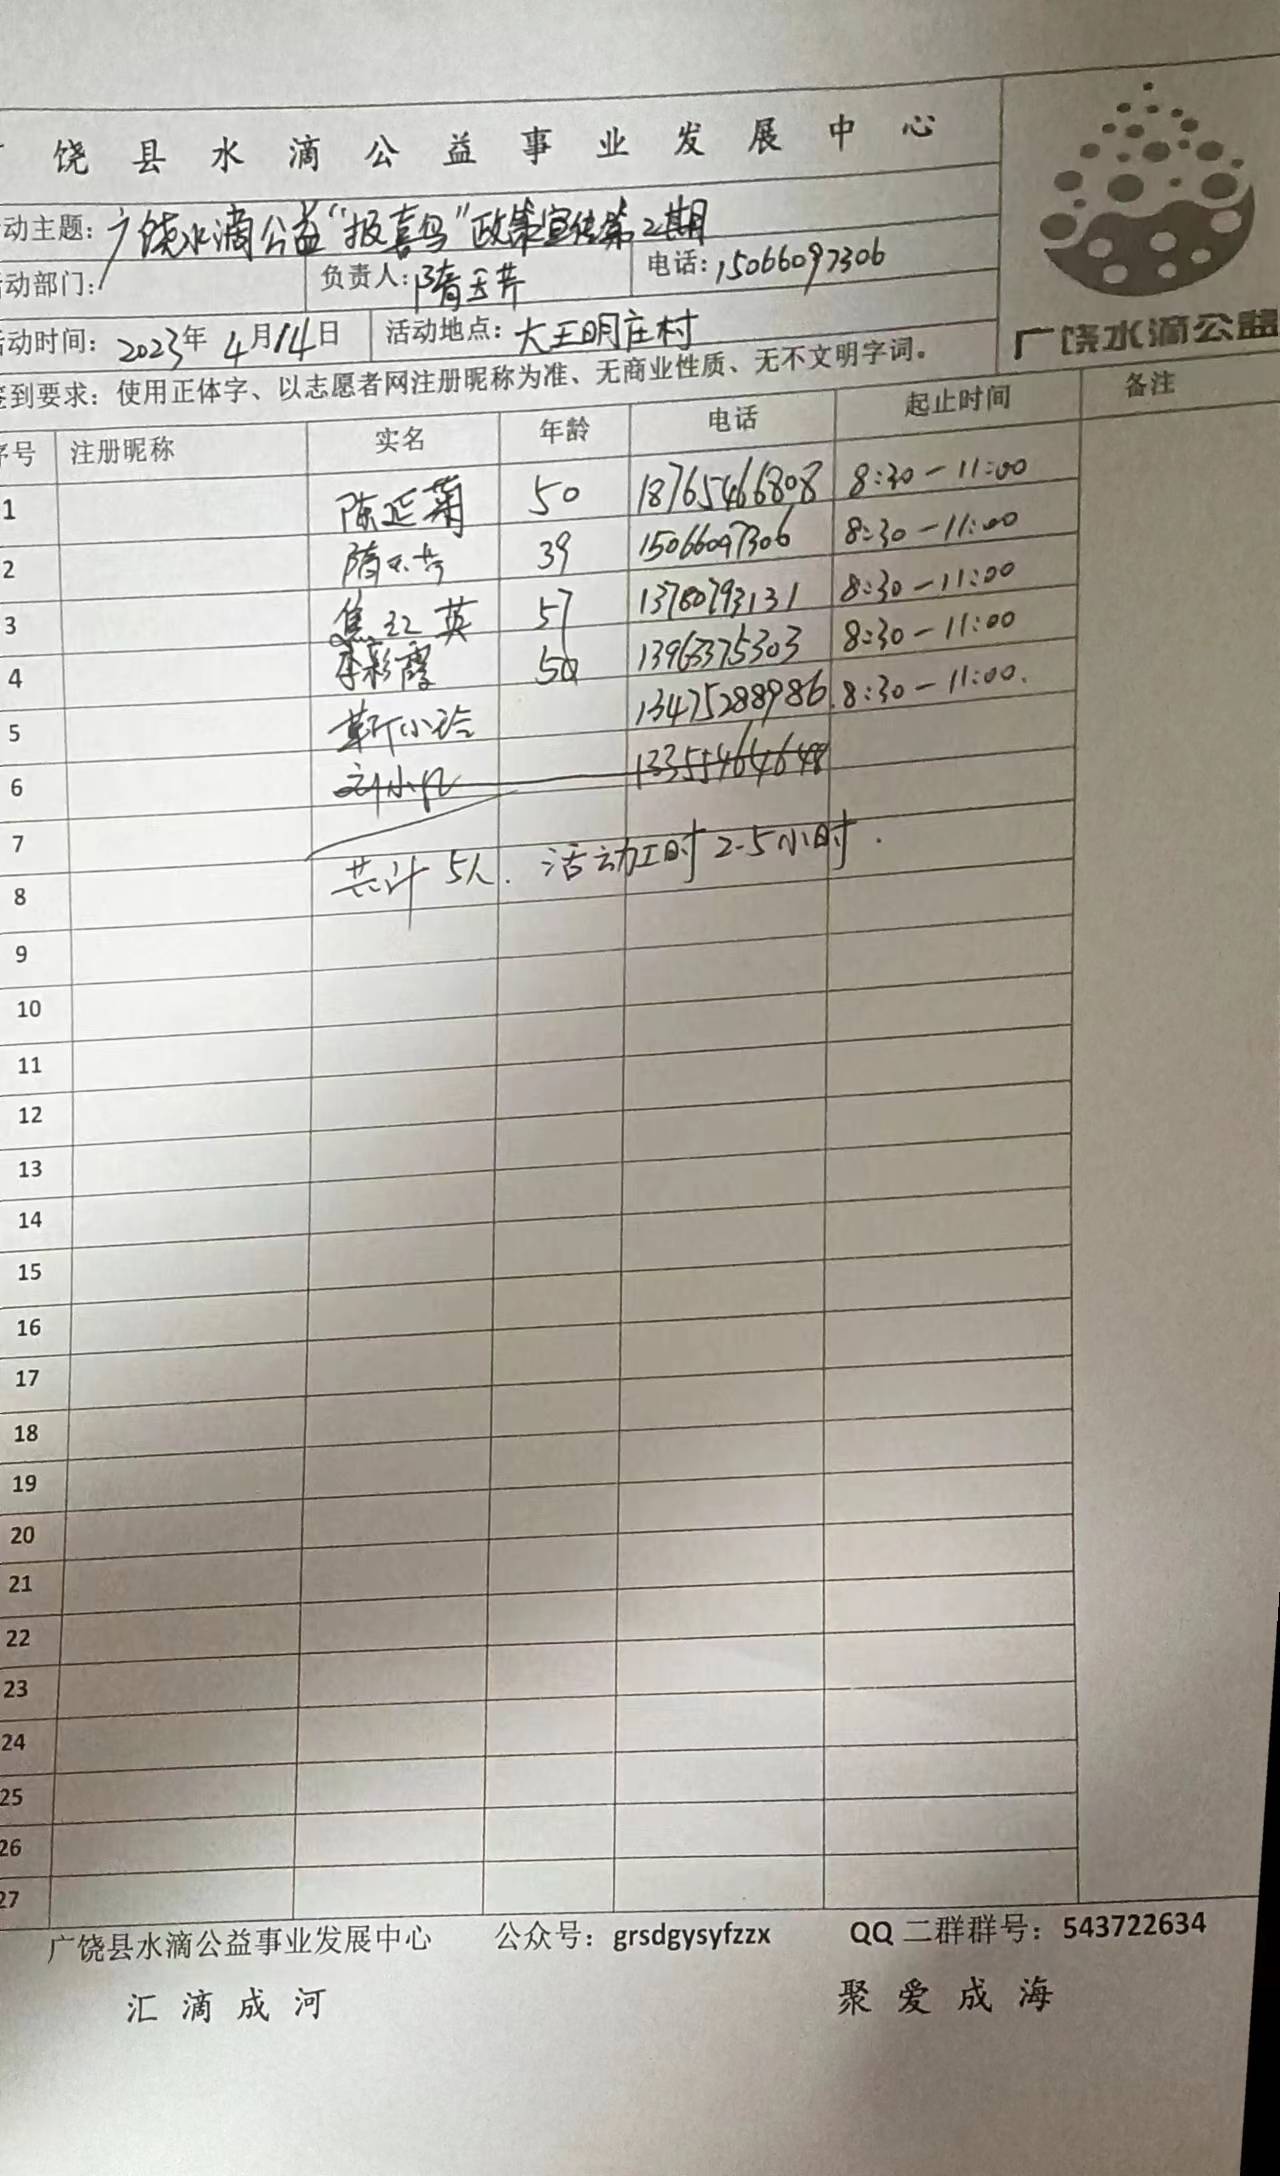 饶县水滴公益事业发展中心
动主题：广饶水滴公益“报喜鸟”政策宣传第2期
动部门： 负责人：隋玉芹 电话：15066097306
活动时间：2023年4月14日 活动地点：大王明庄村
签到要求：使用正体字、以志愿者网注册昵称为准、无商业性质、无不文明字词。
广饶水滴公益
序号 注册昵称 实名 年龄 电话 起止时间 备注
1 陈延菊 50 18765466808 8:30-11:00
2 隋玉芹 39 15066097306 8:30-11:00
3 焦红英 57 13780793131 8:30-11:00
4 李彩霞 50 13963375303 8:30-11:00
5 靳小玲 13475288986 8:30-11:00.
6 13355464648
7
共计5人. 活动工时2.5小时.
8
9
10
11
12
13
14
15
16
17
18
19
20
21
22
23
24
25
26
27
广饶县水滴公益事业发展中心 公众号：grsdgysyfzzx QQ二群群号：543722634
汇滴成河 聚爱成海